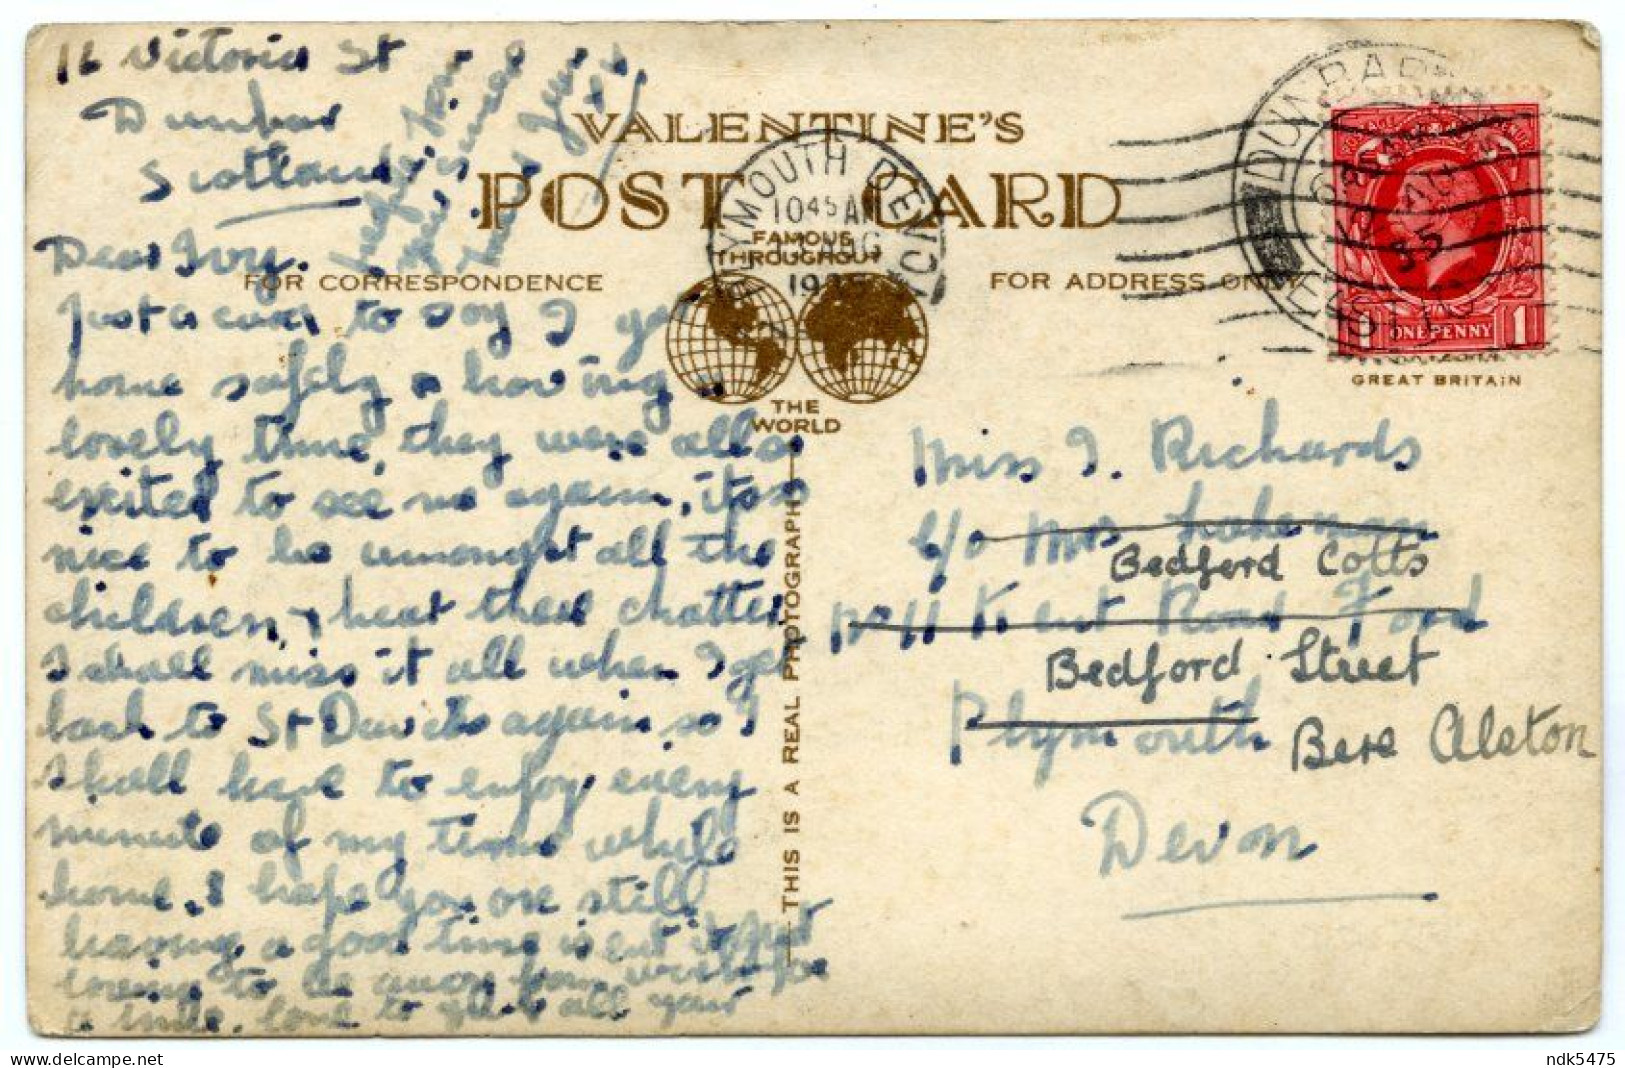 16 Victoria St
Dunbar
Scotland
Dear Ivy.
Just a card to say I got
home safely & having a
lovely time, they were all so
excited to see me again, its so
nice to be amongst all the
children, & hear there chatter
I shall miss it all when I get
back to St Davids again so I
shall have to enjoy every
minute of my time while
home. I hope you are still
having a good time isent it just
lovely to be away from work for
a while. love to you & all your
from
VALENTINE'S
POST CARD
FAMOUS
THROUGHOUT
THE
WORLD
FOR CORRESPONDENCE
FOR ADDRESS ONLY
THIS IS A REAL PHOTOGRAPH
PLYMOUTH DEVON
10 45 AM
AUG
1935
DUNBAR
35
POSTAGE
ONE PENNY
1
GREAT BRITAIN
Miss I. Richards
c/o Mrs Lakeman
Bedford Cotts
No 11 Kent Road Ford
Bedford Street
Plymouth Bere Alston
Devon
ndk5475